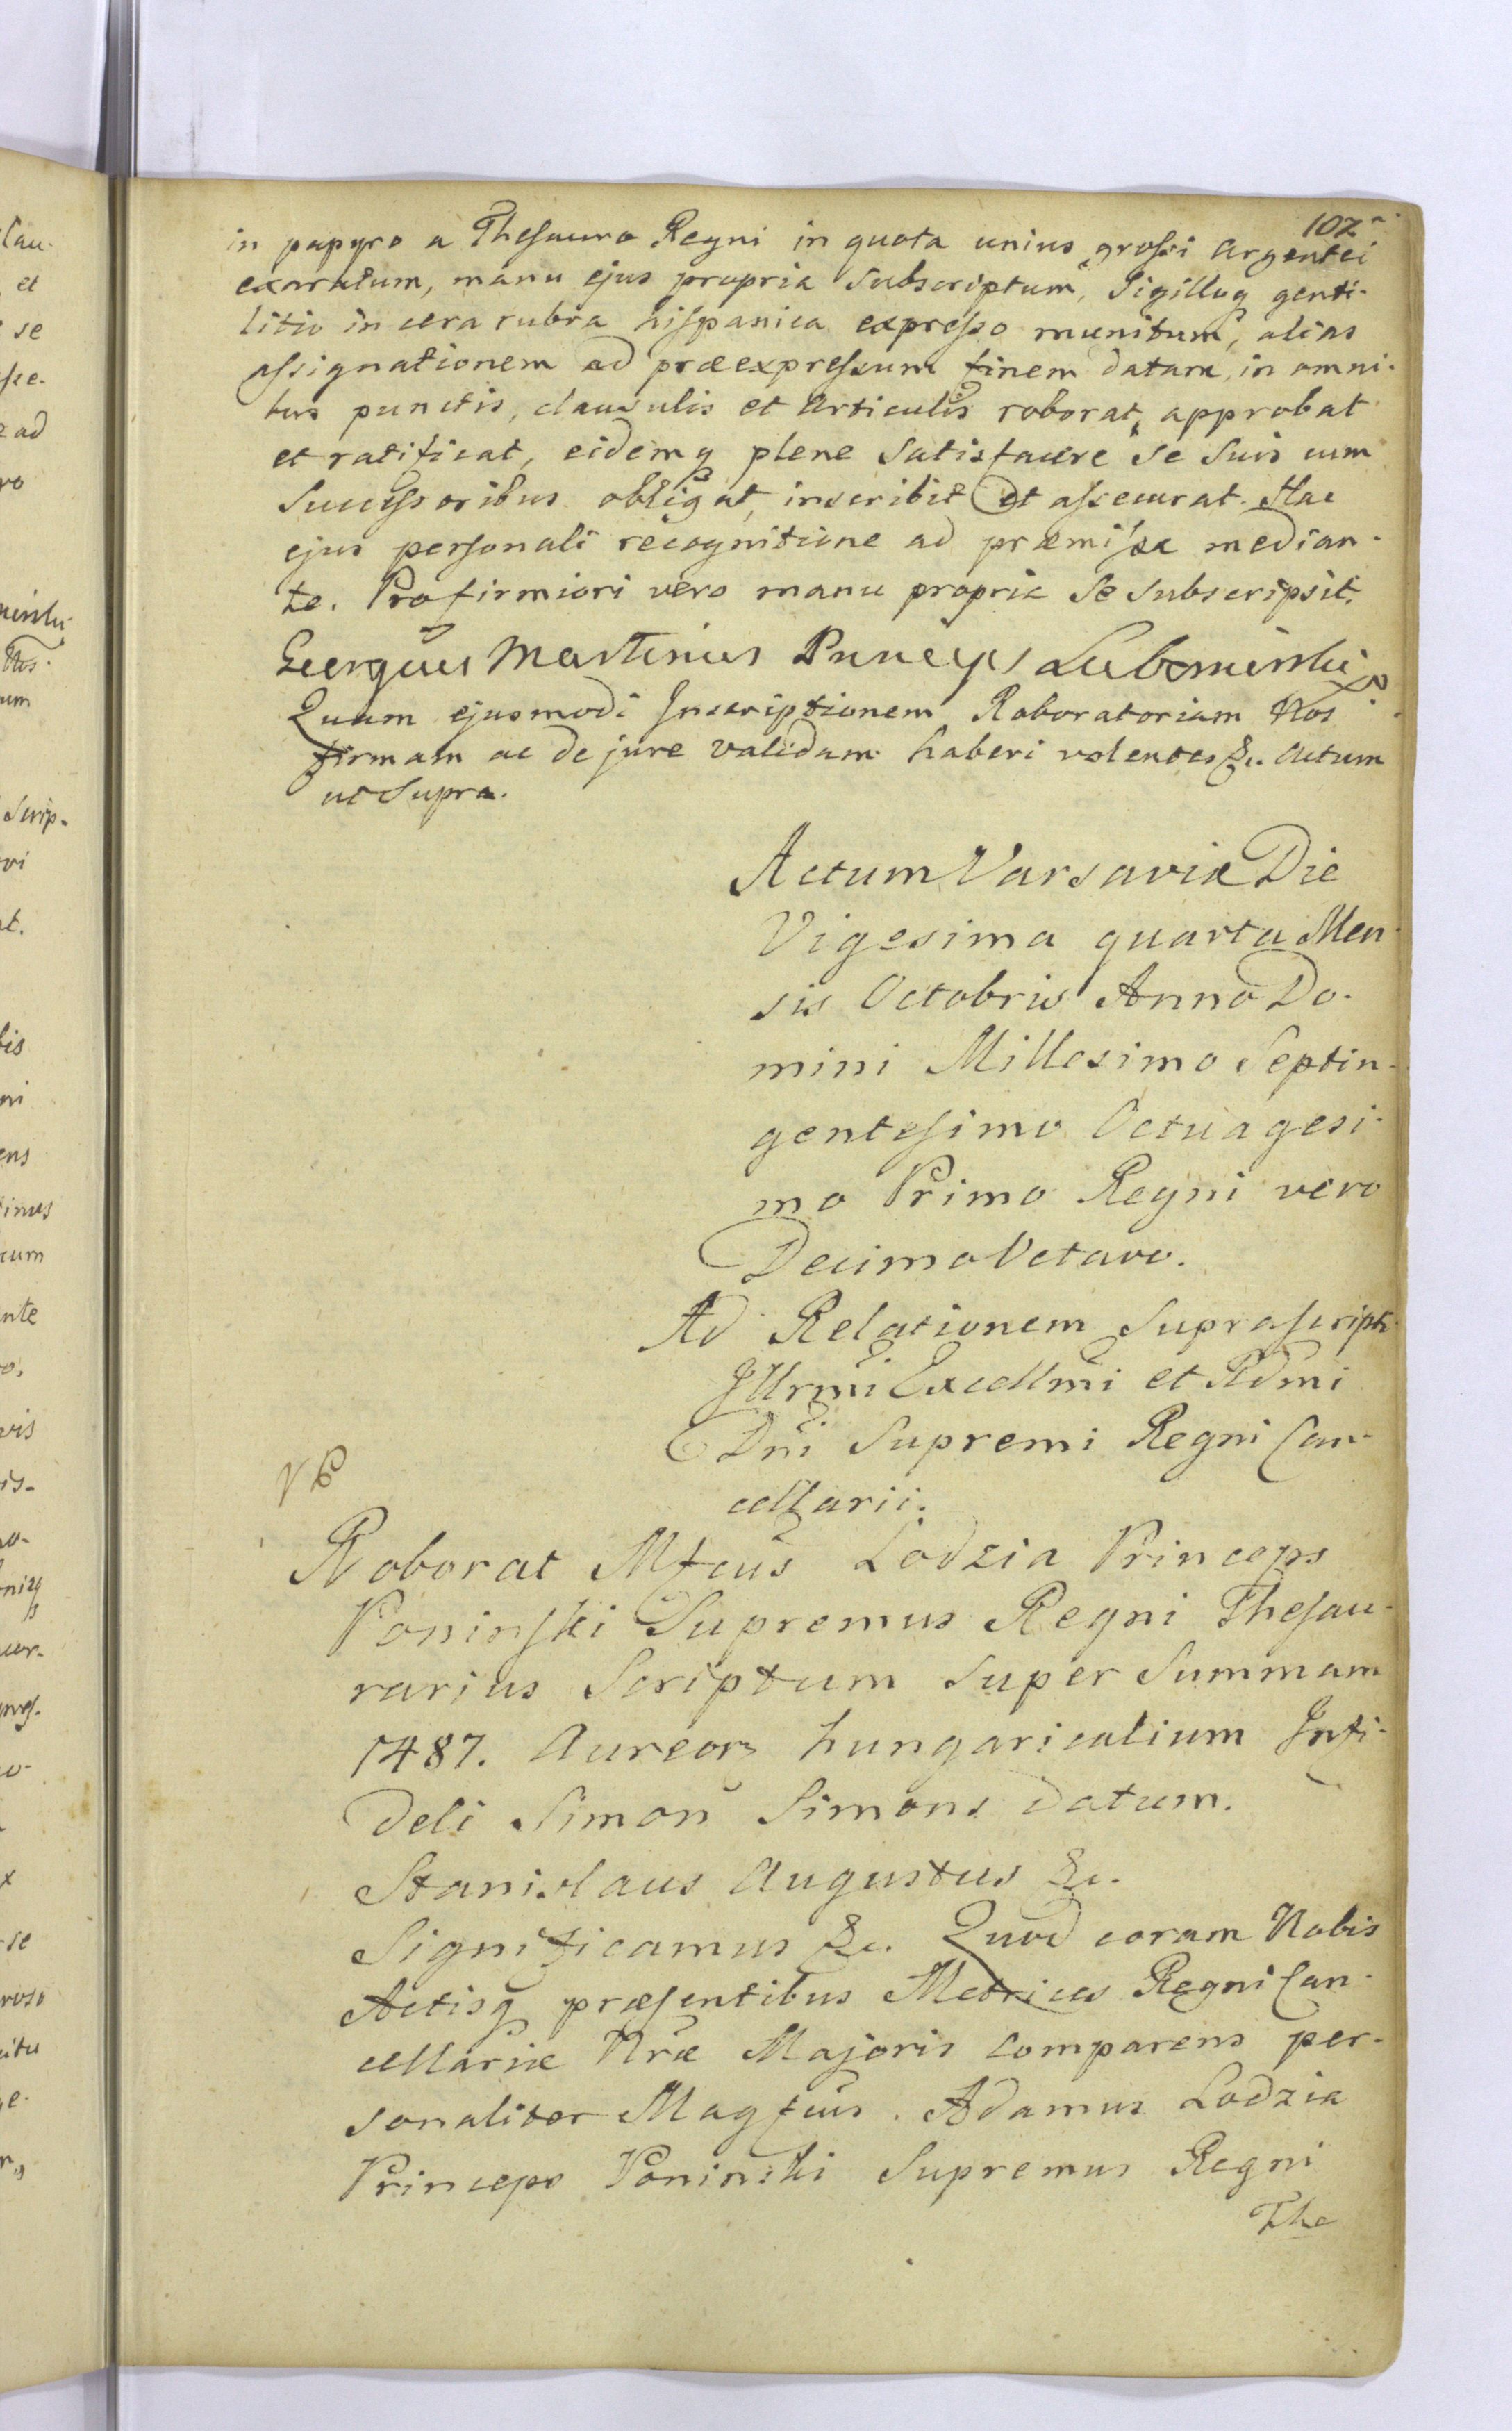 102
in papyro a Thesauro Regni in quota unius grossi argentei
exaratum, manu ejus propria subscriptum, Sigilloq genti-
litio in cera rubra hispanica expresso munitum, alias
assignationem ad præexpressum finem datam, in omni-
bus punctis, clausulis et articulis roborat, approbat
et ratificat, eidemq plene satisfacere se suis cum
Successoribus obligat, inscribit et assecurat. Hac
ejus personali recognitione ad præmissa median-
te. Pro firmiori vero manu propria se subscripsit.
Georgius Martinus Princeps Lubomirski
Quam ejusmodi Inscriptionem Roboratoriam Nos
firmam ac de jure validam haberi volentes &c. Actum
ut Supra.
Actum Varsaviæ Die
Vigesima quarta Men-
sis Octobris Anno Do-
mini Millesimo Septin-
gentesimo Octuagesi-
mo Primo Regni vero
Decimo Octavo.
Ad Relationem suprascripti
Illrmi Excellmi et Rdmi
Dni Supremi Regni Can-
cellarii.
Roborat Mfcus Lodzia Princeps
Poninski Supremus Regni Thesau-
rarius Scriptum super Summam
1487. Aureor hungaricalium Infi-
deli Simon Simons datum.
Stanislaus Augustus &c.
Significamus &c. Quod coram Nobis
Actisq præsentibus Metrices Regni Can-
cellariæ Nræ Majoris comparens per-
sonaliter Magfcus. Adamus Lodzia
Princeps Poninski Supremus Regni
The